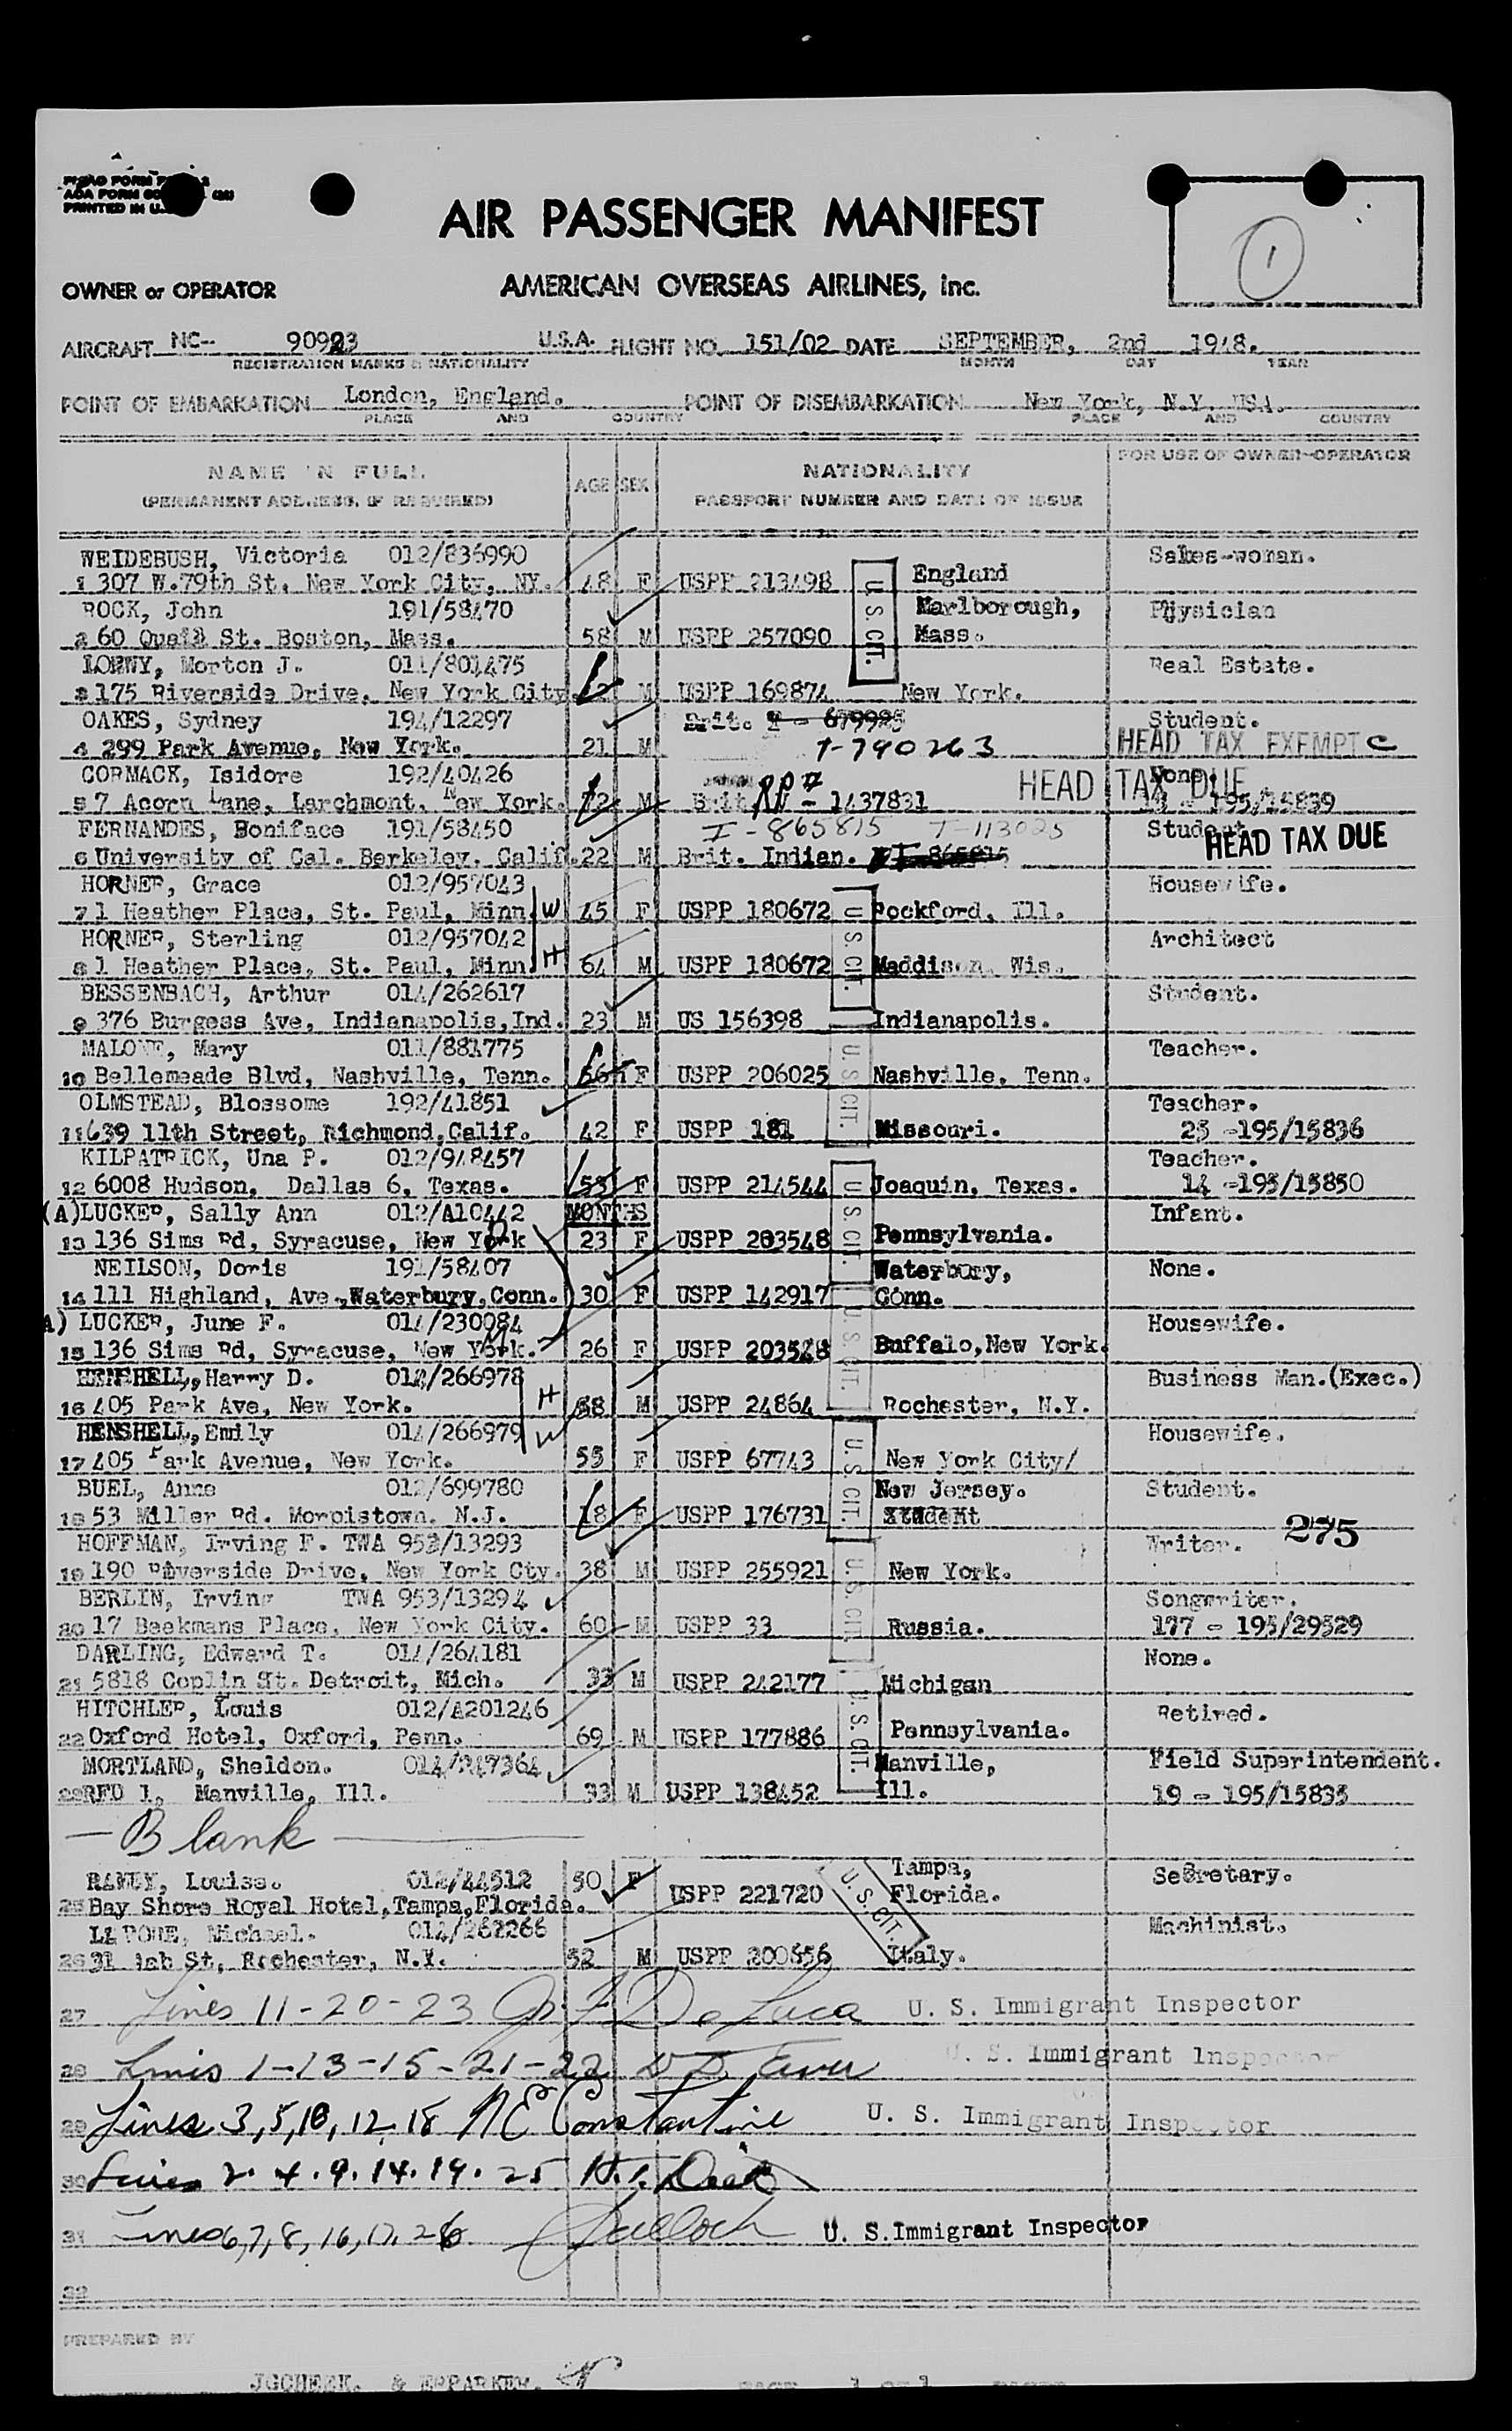 PRINTED IN U.S.
AIR PASSENGER MANIFEST
1
OWNER or OPERATOR AMERICAN OVERSEAS AIRLINES, Inc.
AIRCRAFT NC-- 90923 U.S.A. FLIGHT NO. 151/02 DATE SEPTEMBER, 2nd 1948.
REGISTRATION MARKS & NATIONALITY MONTH DAY YEAR
POINT OF EMBARKATION London, England. POINT OF DISEMBARKATION New York, N.Y. USA.
PLACE AND COUNTRY PLACE AND COUNTRY
NAME IN FULL AGE SEX NATIONALITY FOR USE OF OWNER-OPERATOR
(PERMANENT ADDRESS, IF REQUIRED) PASSPORT NUMBER AND DATE OF ISSUE
WEIDEBUSH, Victoria 012/836990 Sales-woman.
1 307 W.79th St. New York City, NY. 48 F USPP 213498 U.S.CIT. England
ROCK, John 191/58470 Marlborough, Physician
2 60 Quail St. Boston, Mass. 58 M USPP 257090 Mass.
LOEWY, Morton J. 011/801475 Real Estate.
3 175 Riverside Drive, New York City M USPP 169874 New York.
OAKES, Sydney 194/12297 Brit. T - 679925 Student.
4 299 Park Avenue, New York. 21 M T-790263 HEAD TAX EXEMPT C
CORMACK, Isidore 192/40426 HEAD TAX DUE None.
5 7 Acorn Lane, Larchmont, New York. 72 M Brit - 1437831 195/15839
FERNANDES, Boniface 191/58450 I-865815 T-113025 Student
6 University of Cal. Berkeley. Calif. 22 M Brit. Indian. HEAD TAX DUE
HORNER, Grace 012/957043 Housewife.
7 1 Heather Place, St. Paul, Minn. W 45 F USPP 180672 U.S.CIT. Rockford, Ill.
HORNER, Sterling 012/957042 Architect
8 1 Heather Place, St. Paul, Minn. H 64 M USPP 180672 Maddison, Wis.
BESSENBACH, Arthur 014/262617 Student.
9 376 Burgess Ave, Indianapolis, Ind. 23 M US 156398 Indianapolis.
MALONE, Mary 011/881775 Teacher.
10 Bellemeade Blvd, Nashville, Tenn. 56 F USPP 206025 U.S.CIT. Nashville, Tenn.
OLMSTEAD, Blossome 192/41851 Teacher.
11 639 11th Street, Richmond, Calif. 42 F USPP 181 Missouri. 25 -195/15836
KILPATRICK, Una P. 012/948457 Teacher.
12 6008 Hudson, Dallas 6, Texas. 53 F USPP 214544 U.S.CIT. Joaquin, Texas. 14 -195/15850
(A) LUCKER, Sally Ann 012/A10442 MONTHS Infant.
13 136 Sims Rd, Syracuse, New York 23 F USPP 203548 Pennsylvania.
NEILSON, Doris 191/58407 Waterbury, None.
14 111 Highland, Ave., Waterbury, Conn. 30 F USPP 142917 U.S.CIT. Conn.
A) LUCKER, June F. 014/230084 Housewife.
15 136 Sims Rd, Syracuse, New York. 26 F USPP 203548 Buffalo, New York.
HENSHELL, Harry D. 014/266978 Business Man.(Exec.)
16 405 Park Ave, New York. H 58 M USPP 24864 Rochester, N.Y.
HENSHELL, Emily 014/266979 Housewife.
17 405 Park Avenue, New York. W 55 F USPP 67743 U.S.CIT. New York City/
BUEL, Anne 012/699780 New Jersey. Student.
18 53 Miller Rd. Morristown. N.J. 18 F USPP 176731 Student
HOFFMAN, Irving F. TWA 953/13293 Writer. 275
19 190 Riverside Drive, New York Cty. 38 M USPP 255921 U.S.CIT. New York.
BERLIN, Irving TWA 953/13294 Songwriter.
20 17 Beekmans Place, New York City. 60 M USPP 33 Russia. 177 - 195/29529
DARLING, Edward T. 014/264181 None.
21 5818 Coplin St. Detroit, Mich. 33 M USPP 242177 U.S.CIT. Michigan
HITCHLER, Louis 012/A201246 Retired.
22 Oxford Hotel, Oxford, Penn. 69 M USPP 177886 Pennsylvania.
MORTLAND, Sheldon. 014/247364 Manville, Field Superintendent.
23 RFD 1, Manville, Ill. 33 M USPP 138452 Ill. 19 - 195/15835
- Blank -
Louise. 012/44512 50 F Tampa, Secretary.
25 Bay Shore Royal Hotel, Tampa, Florida. USPP 221720 U.S.CIT. Florida.
Michael. 014/262266 Machinist.
26 St, Rochester, N.Y. 52 M USPP 200556 Italy.
27 Lines 11-20-23 De Luca U. S. Immigrant Inspector
28 Lines 1-13-15-21-22 U. S. Immigrant Inspector
29 Lines 3,5,10,12,18 N E Constantine U. S. Immigrant Inspector
30 Lines 2.4.9.14.19.25
31 Lines 6,7,8,16,17,26 U. S. Immigrant Inspector
32
PREPARED BY
JGCHEEK. &